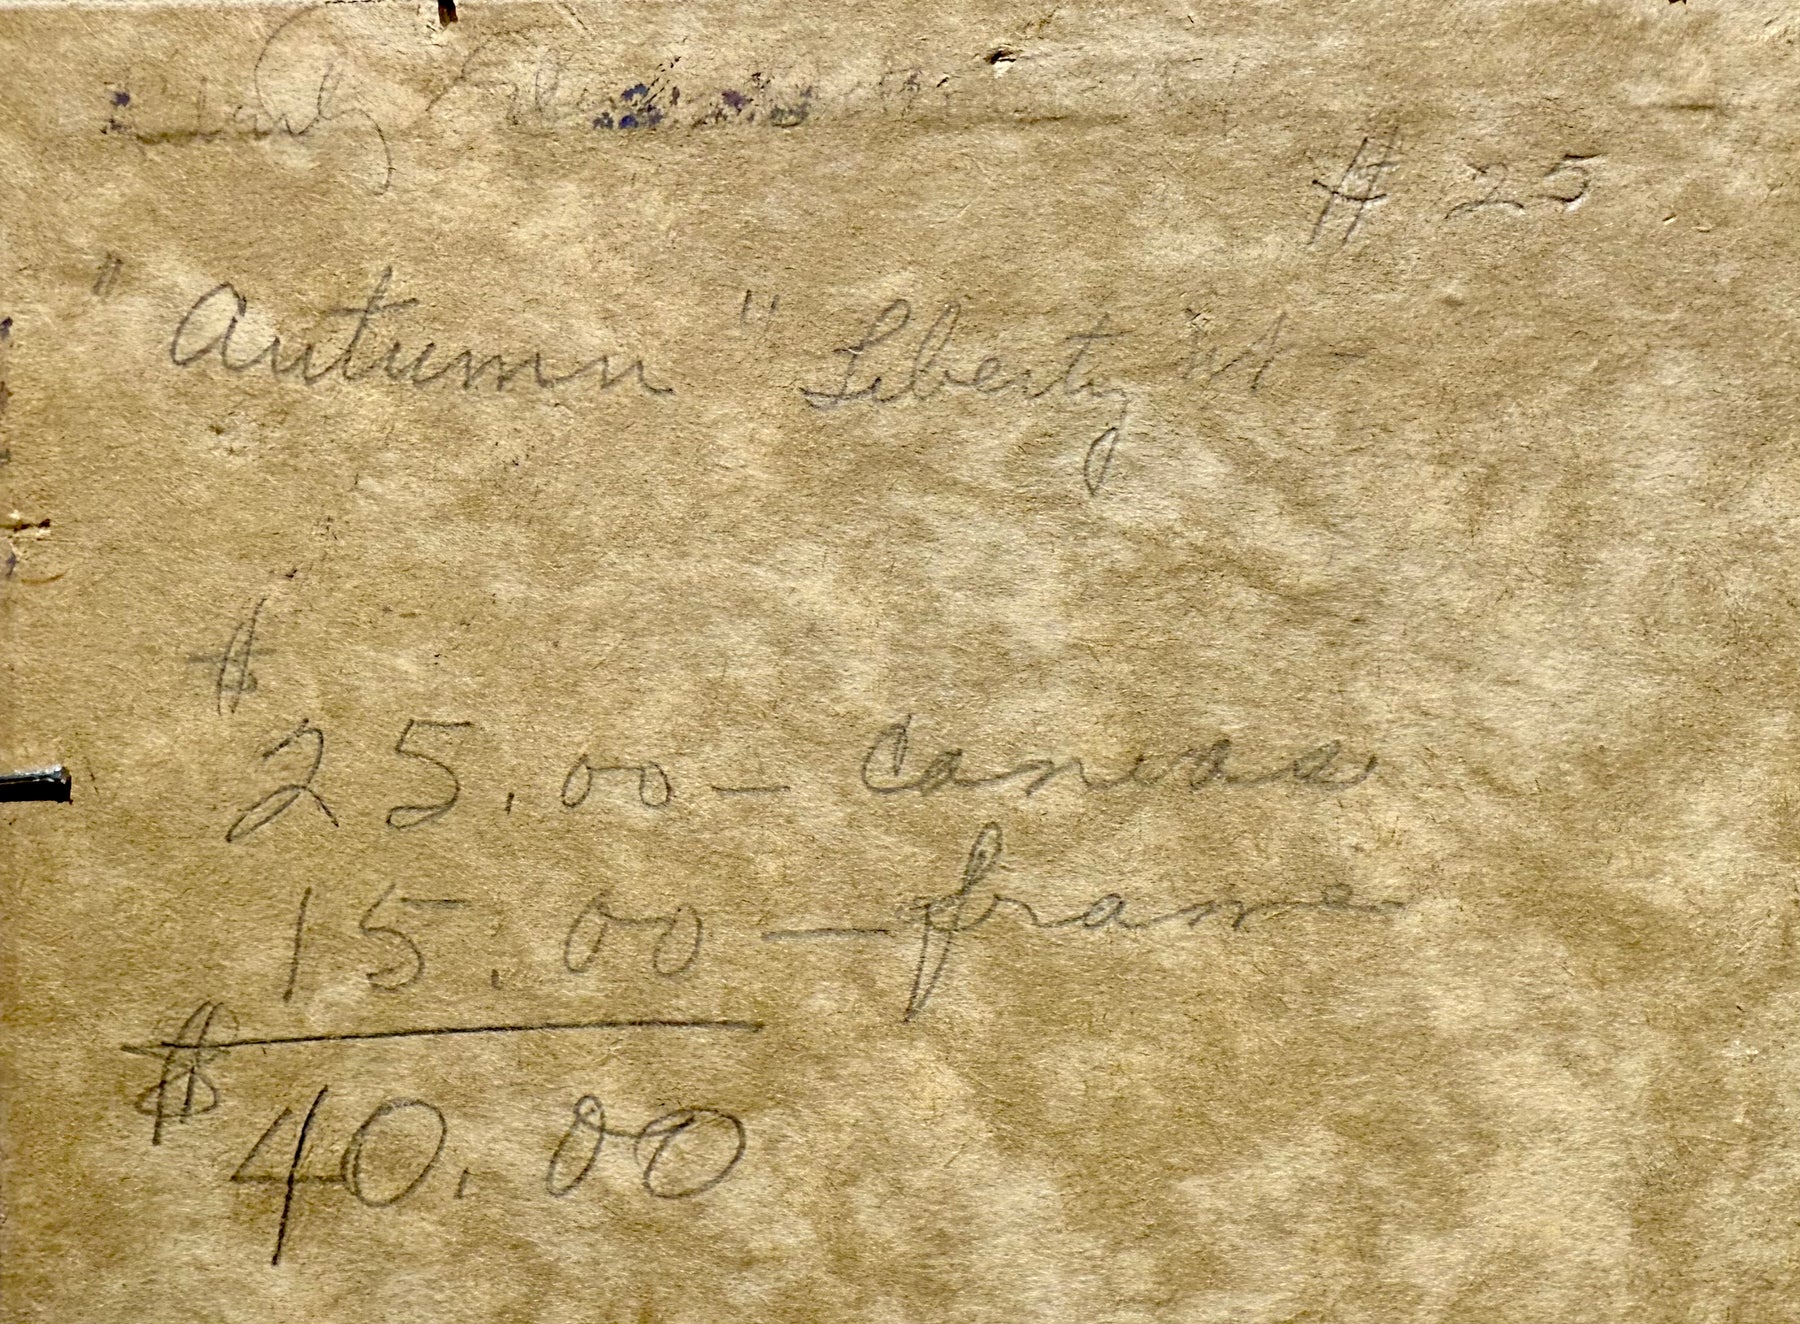 $ 25
"Autumn" Liberty
$
25.00 - Canvas
15.00 - frame
$ 40.00